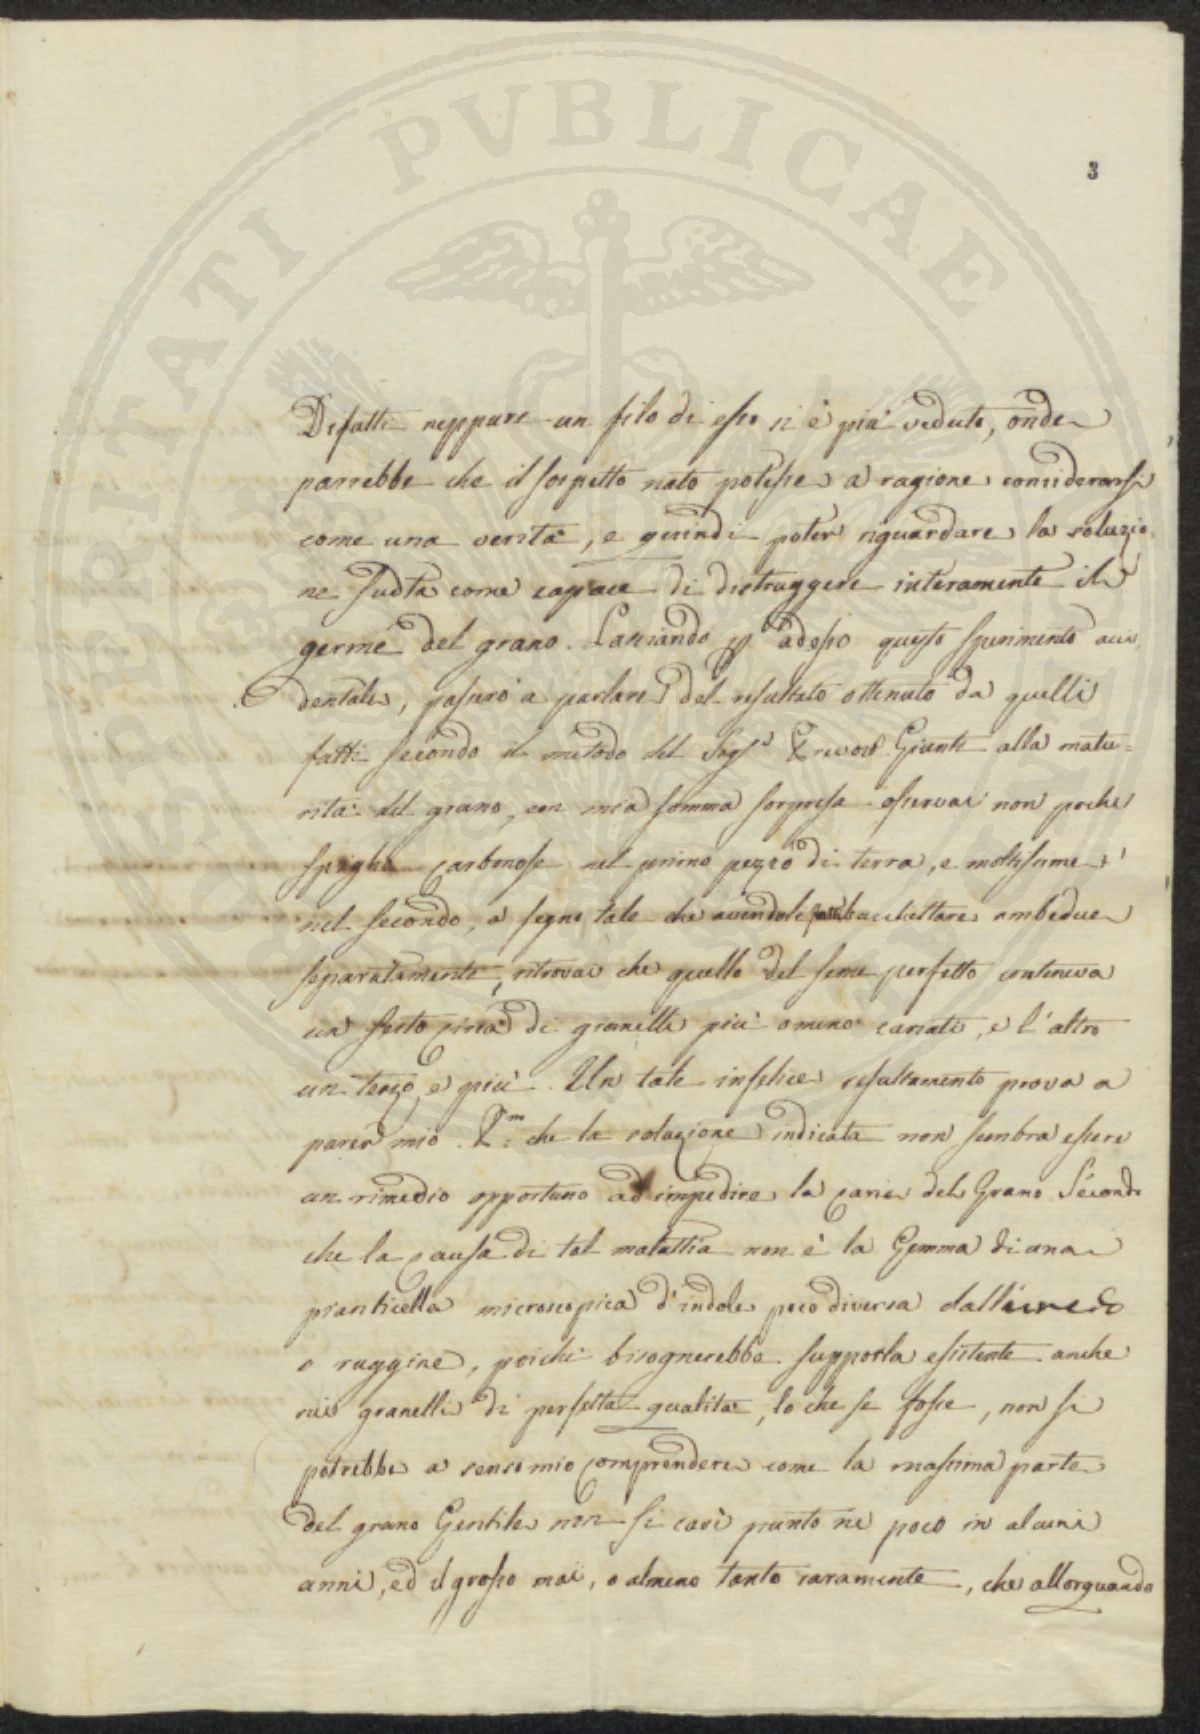 PROSPERITATI PVBLICAE
3
Difatti neppure un filo di esso si è più veduto, onde
parrebbe che il sospetto nato potesse a ragione considerarsi
come una verità, e quindi poter riguardare la soluzio-
ne sudta come capace di distruggere interamente il
germe del grano. Lasciando p adesso questo sperimento acci
dentale, passerò a parlare del resultato ottenuto da quelli
fatti secondo il metodo del Sigr Giunti alla matu=
rità del grano, con mia somma sorpresa osservai non poche
spighe carbonose nel primo pezzo di terra, e moltissime
nel secondo, a segno tale che avendole fatte bacchettare ambedue
separatamente, ritrovai che quello del seme perfetto conteneva
un sesto circa di granelli più o meno cariati, e l'altro
un terzo, e più. Un tale infelice resultamento prova a
parer mio che la soluzione indicata non sembra essere
un rimedio opportuno ad impedire la carie del Grano. Secondo
che la causa di tal malattia non è la Gemma di una
pianticella microscopica d'indole poco diversa dall'uredo
o ruggine, poichè bisognerebbe supporla esistente anche
nei granelli di perfetta qualità, lo che se fosse, non si
potrebbe a senso mio comprendere come la massima parte
del grano Gentile non si cari punto ne poco in alcuni
anni, ed il grosso mai, o almeno tanto raramente, che allorquando